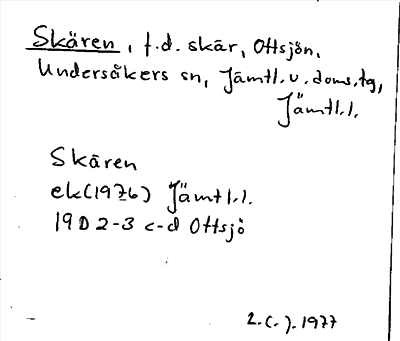 Skären, f.d. skär, Ottsjön,
Undersåkers sn, Jämtl. v. doms.tg,
Jämtl.l.
Skären
ek(1976) Jämtl.l.
19D 2-3 c-d Ottsjö
2.c.j.1977